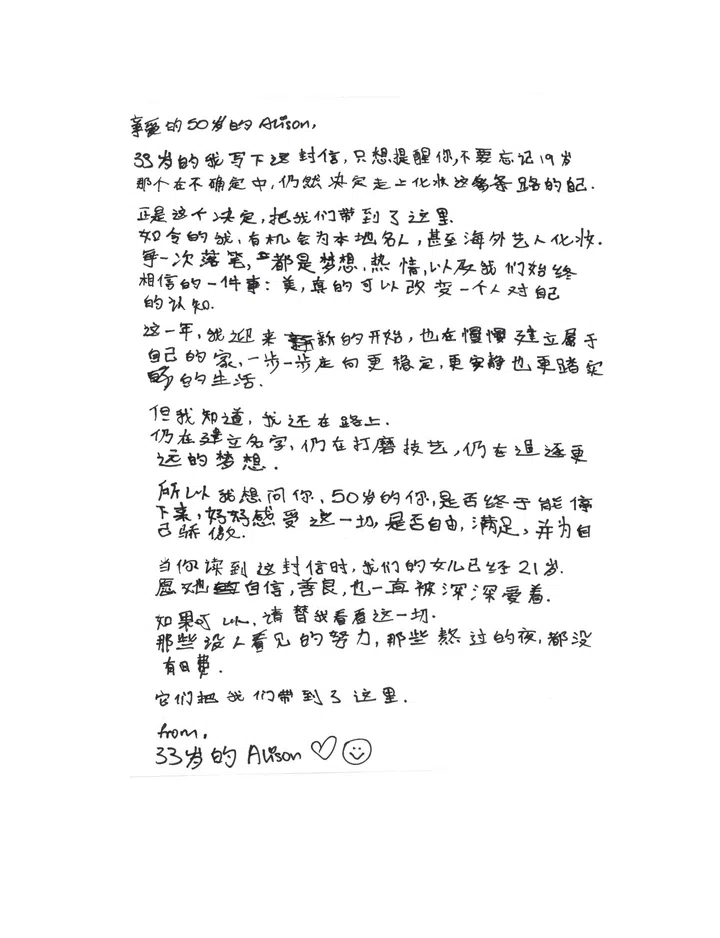 亲爱的50岁的Alison,
33岁的我写下这封信,只想提醒你,不要忘记19岁
那个在不确定中,仍然决定走上化妆这条路的自己.
正是这个决定,把我们带到了这里.
如今的我,有机会为本地名人,甚至海外艺人化妆.
每一次落笔,都是梦想,热情,以及我们始终
相信的一件事:美,真的可以改变一个人对自己
的认知.
这一年,我迎来新的开始,也在慢慢建立属于
自己的家,一步一步走向更稳定,更安静也更踏实
的生活.
但我知道,我还在路上.
仍在建立名字,仍在打磨技艺,仍在追逐更
远的梦想.
所以我想问你、50岁的你,是否终于能停
下来,好好感受这一切,是否自由,满足,并为自
己骄傲.
当你读到这封信时,我们的女儿已经21岁.
愿她自信,善良,也一直被深深爱着.
如果可以,请替我看看这一切.
那些没人看见的努力,那些熬过的夜,都没
有白费.
它们把我们带到了这里.
from,
33岁的Alison